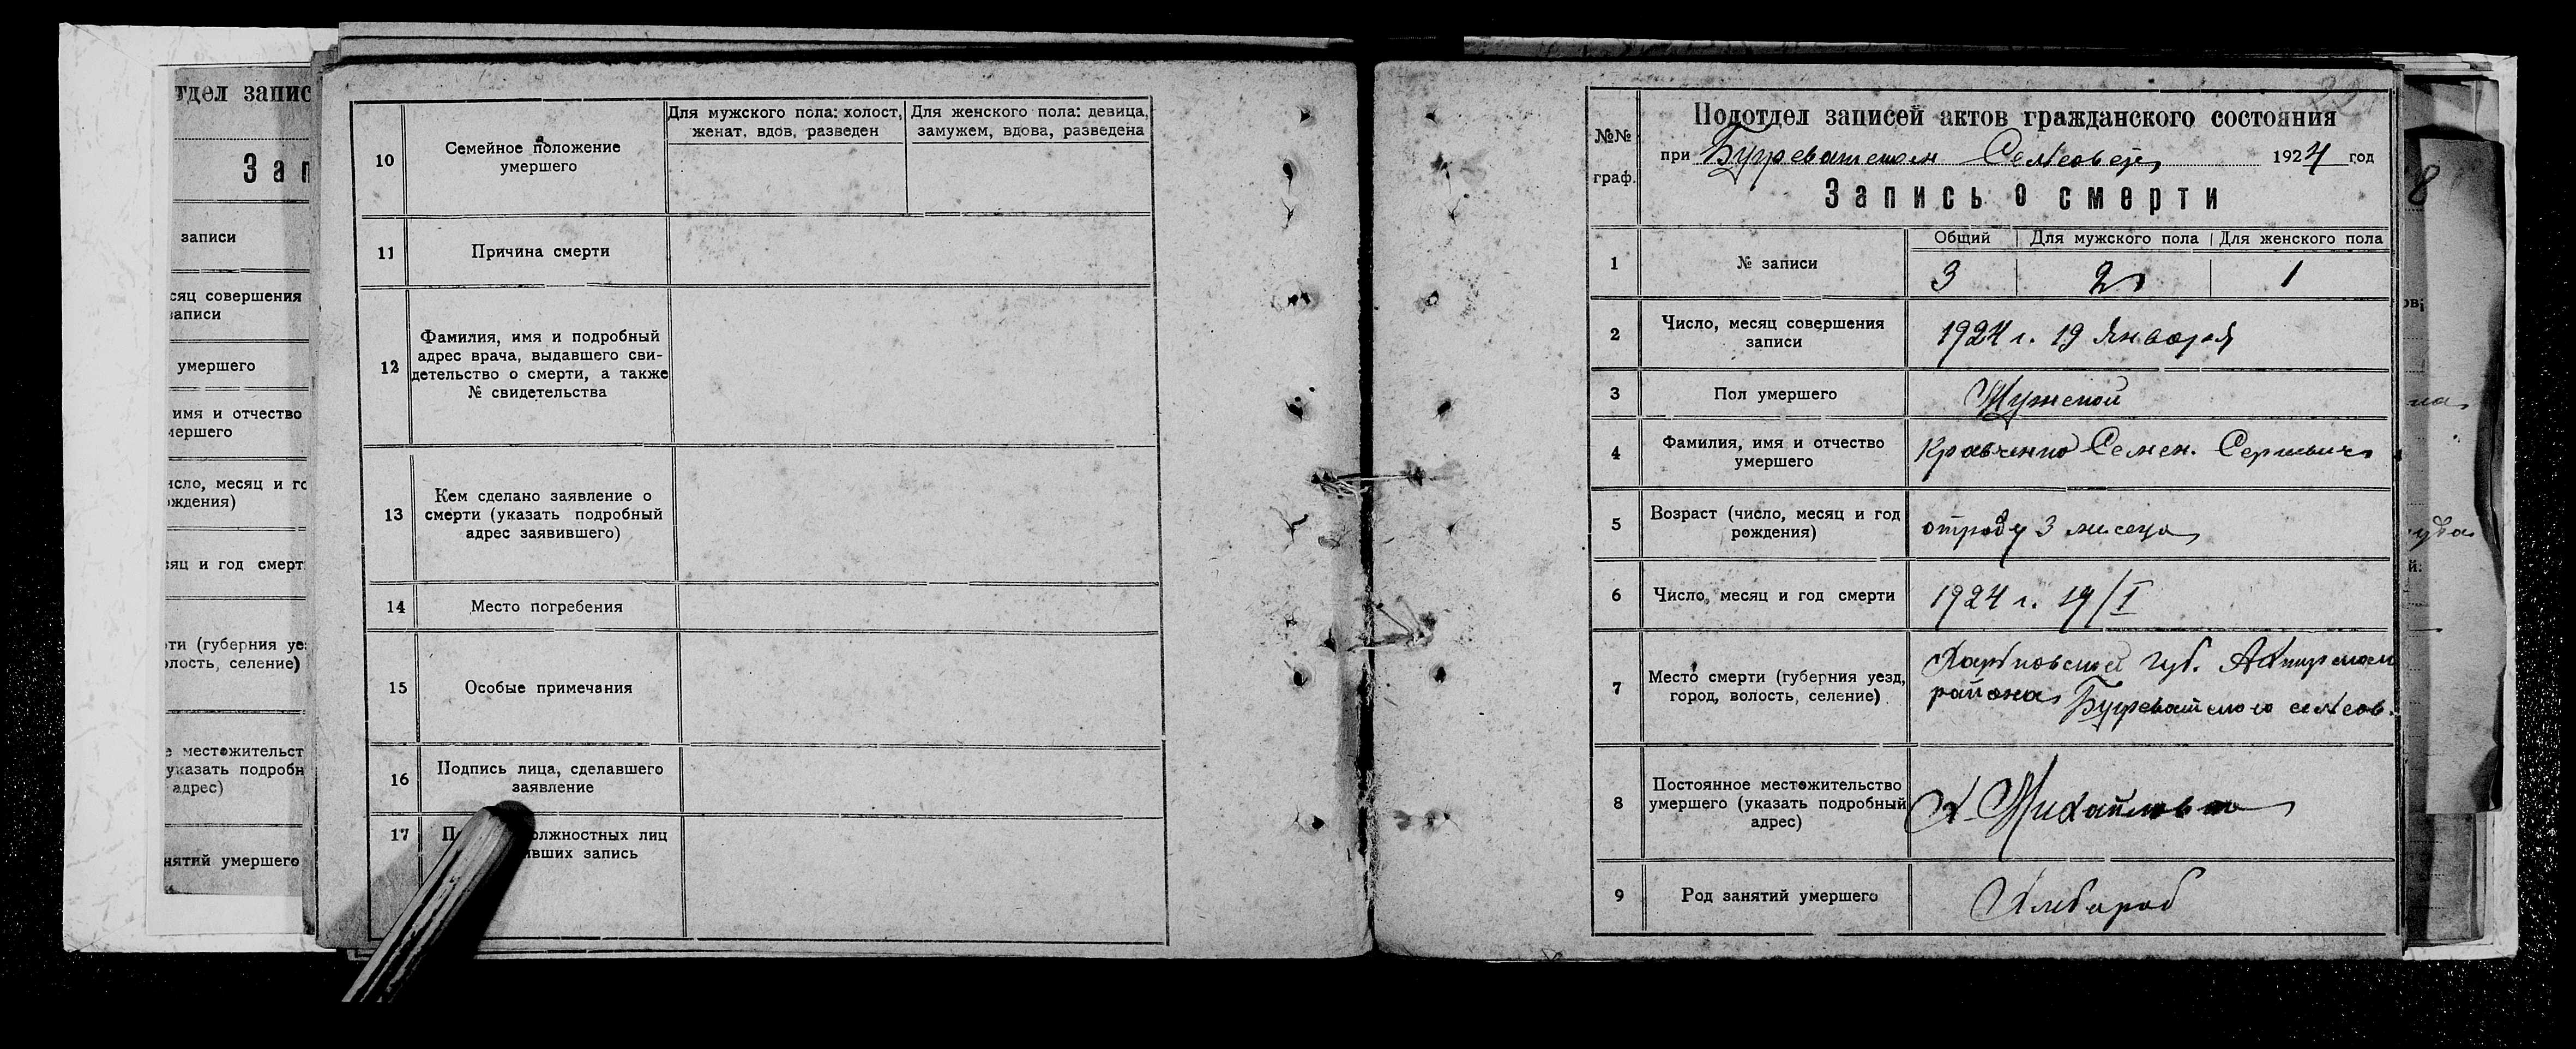 тдел запис
Зап
записи
сяц совершения
записи
умершего
имя и отчество
мершего
исло, месяц и го
ождения)
сяц и год смерт
рти (губерния уе
олость, селение)
е местожительст
указать подробн
адрес)
нятий умершего
10
Семейное положение
умершего
Для мужского пола: холост,
женат, вдов, разведен
Для женского пола: девица,
замужем, вдова, разведена
11
Причина смерти
12
Фамилия, имя и подробный
адрес врача, выдавшего сви-
детельство о смерти, а также
№ свидетельства
13
Кем сделано заявление о
смерти (указать подробный
адрес заявившего)
14
Место погребения
15
Особые примечания
16
Подпись лица, сделавшего
заявление
17 П олжностных лиц
ивших запись
№№
граф.
Подотдел записей актов гражданского состояния
при Бугреватском Сельсовете 1924 год
Запись о смерти
Общий Для мужского пола Для женского пола
1 № записи 3 2 1
2
Число, месяц совершения
записи
1924 г. 19 Января
3 Пол умершего Мужской
4
Фамилия, имя и отчество
умершего
Кравченко Семен. Сергеевич
5
Возраст (число, месяц и год
рождения)
отроду 3 месеца
6 Число, месяц и год смерти 1924 г. 19/I
7
Место смерти (губерния уезд,
город, волость, селение)
Харьковской губ. Ахтырском
района Бугреватского сельсов.
8
Постоянное местожительство
умершего (указать подробный
адрес)
Х. Михайловка
9 Род занятий умершего Хлебороб
8